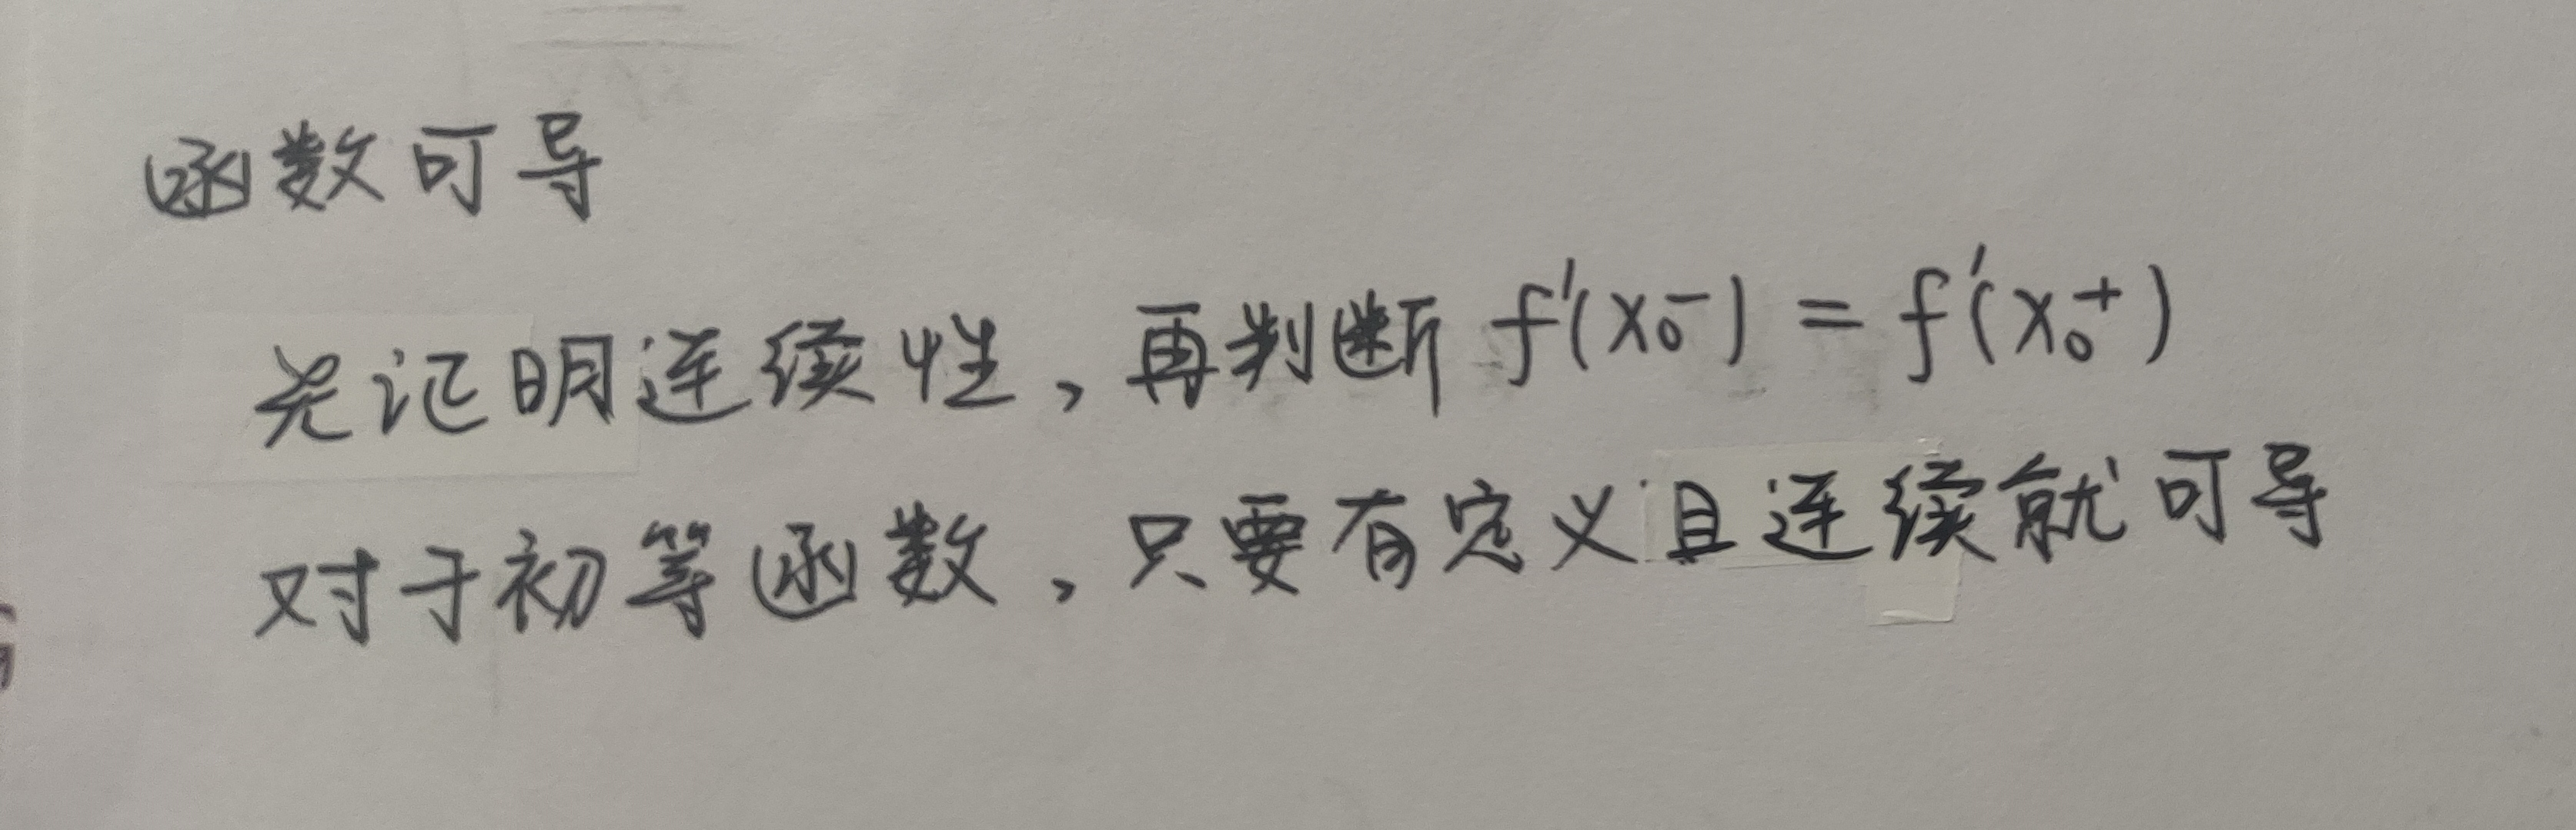 函数可导
先证明连续性，再判断 f'(x₀⁻) = f'(x₀⁺)
对于初等函数，只要有定义且连续就可导